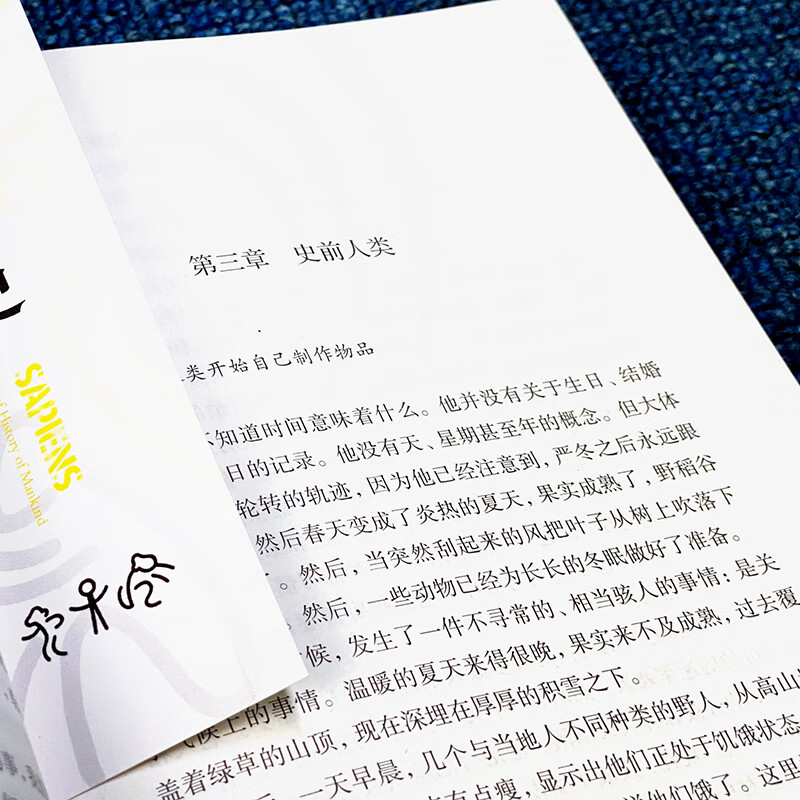 SAPIENS
History of Mankind
第三章 史前人类
类开始自己制作物品
知道时间意味着什么。他并没有关于生日、结婚
日的记录。他没有天、星期甚至年的概念。但大体
轮转的轨迹,因为他已经注意到,严冬之后永远跟
然后春天变成了炎热的夏天,果实成熟了,野稻谷
。然后,当突然刮起来的风把叶子从树上吹落下
。然后,一些动物已经为长长的冬眠做好了准备。
候,发生了一件不寻常的、相当骇人的事情:是关
气候上的事情。温暖的夏天来得很晚,果实来不及成熟,过去覆
盖着绿草的山顶,现在深埋在厚厚的积雪之下。
一天早晨,几个与当地人不同种类的野人,从高山
有点瘦,显示出他们正处于饥饿状态
他们饿了。这里